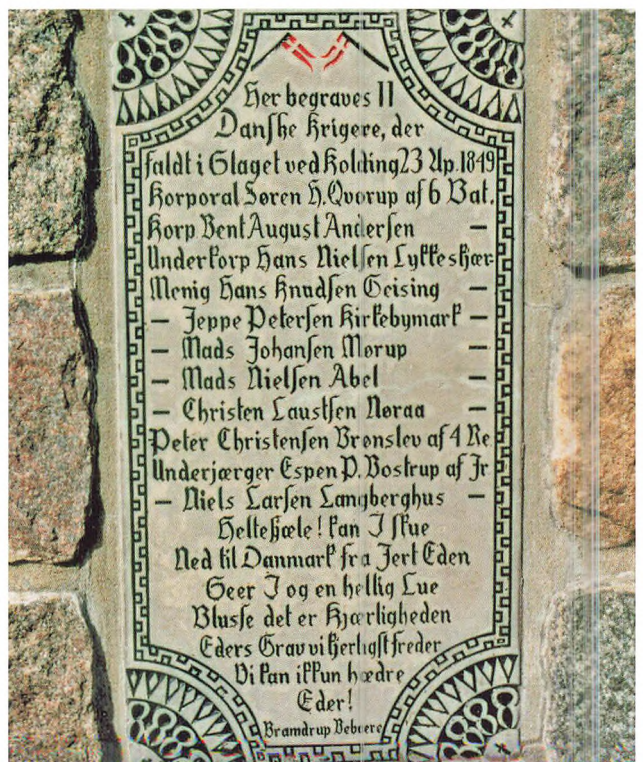 Her begraves 11
Danske Krigere, der
faldt i Slaget ved Kolding 23 Ap. 1849
Korporal Søren H. Qvorup af 6 Bat.
Korp Bent August Andersen —
Underkorp Hans Nielsen Lykkeskjær-
Menig Hans Knudsen Geising —
— Jeppe Petersen Kirkebymark —
— Mads Johansen Mørup —
— Mads Nielsen Abel —
— Christen Laustsen Nøraa —
Peter Christensen Brønslev af 4 Re
Underjærger Espen P. Bostrup af Jr
— Niels Larsen Langberghus —
Heltesjæle! kan I skue
Ned til Danmark fra Jert Eden
Seer I og en hellig Lue
Blusse det er Kjærligheden
Eders Grav vi kjerligst freder
Vi kan ikkun hædre
Eder!
Bramdrup Beboere